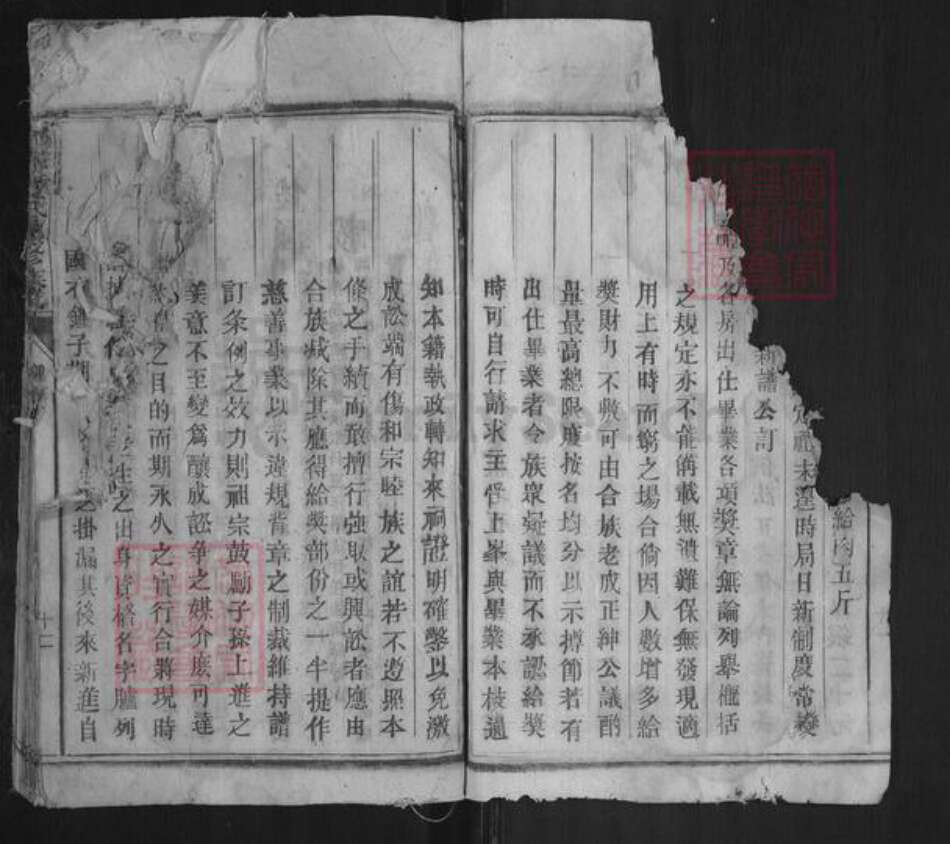 給肉五斤
定礼未邀時局日新制度常變
新譜公訂
及各房出仕畢業各項獎章無論列舉概括
之規定亦不能購載無潰難保無發現適
用上有時而窮之場合倘因人數增多給
獎財力不敷可由合族老成正紳公議酌
量最高總限度按名均分以示撙節若有
出仕畢業者令族眾疑議而不承認給獎
時可自行請求主管上峯與畢業本校通
知本籍執政轉知來祠證明確鑿以免激
成訟端有傷和宗睦族之誼若不遵照本
條之手續而敢擅行強取或興訟者應由
合族減除其應得給獎部份之一半提作
慈善事業以示違規背章之制裁維持譜
訂条例之效力則祖宗鼓勵子孫上進之
美意不至變爲釀成訟爭之媒介庶可達
之目的而期永久之實行合將現時
之出身資格名字臚列
國 子 之掛漏其後來新進自
十二